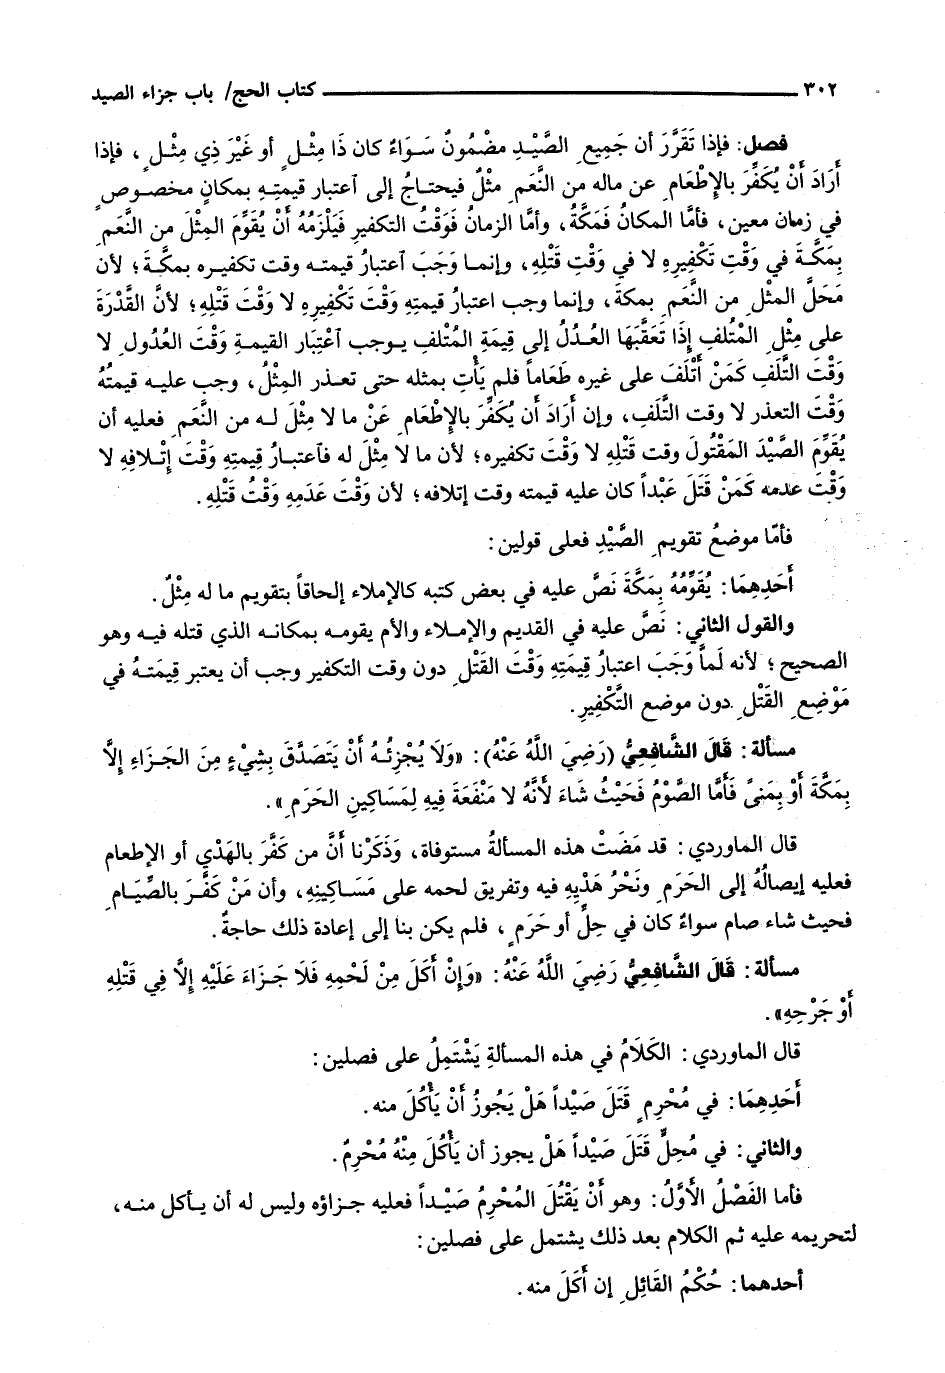 ٣٠٢ كتاب الحج/ باب جزاء الصيد
فصل: فإذا تَقَرَّرَ أن جَمِيعِ الصَّيْدِ مضْمُونٌ سَوَاءٌ كان ذَا مِثْلٍ أو غَيْرَ ذِي مِثْلٍ، فإذا
أَرَادَ أَنْ يُكَفِّرَ بالإِطْعَامِ عن ماله من النَّعَمِ مثْلٌ فيحتاجُ إلى اَعتبار قيمتِهِ بمكانٍ مخصوصٍ
في زمان معين، فأمَّا المكانُ فَمَكَّةُ، وأمَّا الزمان فَوَقْتُ التكفيرِ فَيَلْزَمُهُ أَنْ يُقَوِّمَ المِثْلَ من النَّعَمِ
بِمَكَّةَ في وَقْتِ تَكْفِيرِهِ لا في وَقْتِ قَتْلِهِ، وإنما وَجَبَ اَعتبارُ قيمته وقت تكفيره بمكَّةَ؛ لأن
مَحَلَّ المثْلِ من النَّعَمِ بمكةَ، وإنما وجب اعتبارُ قيمتِهِ وَقْتَ تَكْفِيرِهِ لا وَقْتَ قَتْلِهِ؛ لأنَّ القُدْرَةَ
على مِثْلِ المُتلفِ إِذَا تَعَقَّبَهَا العُدُلُ إلى قِيمَةِ المُتْلفِ يوجب اَعْتِبَار القيمةِ وَقْتَ العُدُولِ لا
وَقْتَ التَّلَفِ كَمَنْ أَتْلَفَ على غيره طَعَاماً فلم يَأْتِ بمثله حتى تعذر المِثْلُ، وجب عليه قيمتُهُ
وَقْتَ التعذر لا وقت التَّلَفِ، وإن أَرَادَ أن يُكَفِّرَ بالإِطْعَامِ عَنْ ما لا مِثْلَ له من النَّعَمِ فعليه أن
يُقَوِّمَ الصَّيْدَ المَقْتُولَ وقت قَتْلِهِ لا وَقْتَ تكفيره؛ لأن ما لا مِثْلَ له فاَعتبارُ قِيمتِهِ وَقْتَ إِتْلافِهِ لا
وَقْتَ عدمه كَمَنْ قَتَلَ عَبْداً كان عليه قيمته وقت إتلافه؛ لأن وَقْتَ عَدَمِهِ وَقْتُ قَتْلِهِ.
فأمَّا موضعُ تقويمِ الصَّيْدِ فعلى قولين:
أَحَدِهِمَا: يُقَوِّمُهُ بِمَكَّةَ نَصَّ عليه في بعض كتبه كالإملاء إلحاقاً بتقويم ما له مِثْلٌ.
والقول الثاني: نَصَّ عليه في القديم والإملاء والأم يقومه بمكانه الذي قتله فيه وهو
الصحيح؛ لأنه لَمَّا وَجَبَ اعتبارُ قيمتِهِ وَقْتَ القَتْلِ دون وقت التكفير وجب أن يعتبر قِيمَتهُ في
مَوْضِعِ القَتْلِ دون موضع التَّكْفِيرِ.
مسألة: قَالَ الشَّافعِيُّ (رَضِيَ اللَّهُ عَنْهُ): «وَلَا يُجْزِئُهُ أَنْ يَتَصَدَّقَ بِشَيْءٍ مِنَ الجَزَاءِ إِلَّا
بِمَكَّةَ أَوْ بِمَنىً فَأَمَّا الصَّوْمُ فَحَيْثُ شَاءَ لأَنَّهُ لا مَنْفَعَةَ فِيهِ لِمَسَاكِينِ الحَرَمِ».
قال الماوردي: قد مَضَتْ هذه المسألةُ مستوفاة، وَذَكَرْنا أَنَّ من كَفَّرَ بالهَدْي أو الإطعام
فعليه إيصالُهُ إلى الحَرَمِ ونَحْرُ هَدْيِهِ فيه وتفريق لحمه على مَسَاكِينِهِ، وأن مَنْ كَفَّرَ بالصِّيَامِ
فحيث شاء صام سواءٌ كان في حِلٍّ أو حَرَمٍ، فلم يكن بنا إلى إعادة ذلك حاجةٌ.
مسألة: قَالَ الشَّافِعِيُّ رَضِيَ اللَّهُ عَنْهُ: «وَإِنْ أَكَلَ مِنْ لَحْمِهِ فَلَا جَزَاءَ عَلَيْهِ إِلَّا فِي قَتْلِهِ
أَوْ جَرْحِهِ».
قال الماوردي: الكَلَامُ في هذه المسألةِ يَشْتَمِلُ على فصلين:
أَحَدِهِمَا: في مُحْرِمٍ قَتَلَ صَيْداً هَلْ يَجُوزُ أَنْ يَأْكُلَ منه.
والثاني: في مُحِلٍّ قَتَلَ صَيْداً هَلْ يجوز أن يَأْكُلَ مِنْهُ مُحْرِمٌ.
فأما الفَصْلُ الأَوَّلُ: وهو أَنْ يَقْتُلَ المُحْرِمُ صَيْداً فعليه جزاؤه وليس له أن يأكل منه،
لتحريمه عليه ثم الكلام بعد ذلك يشتمل على فصلين:
أحدهما: حُكْمُ القَائِلِ إن أَكَلَ منه.